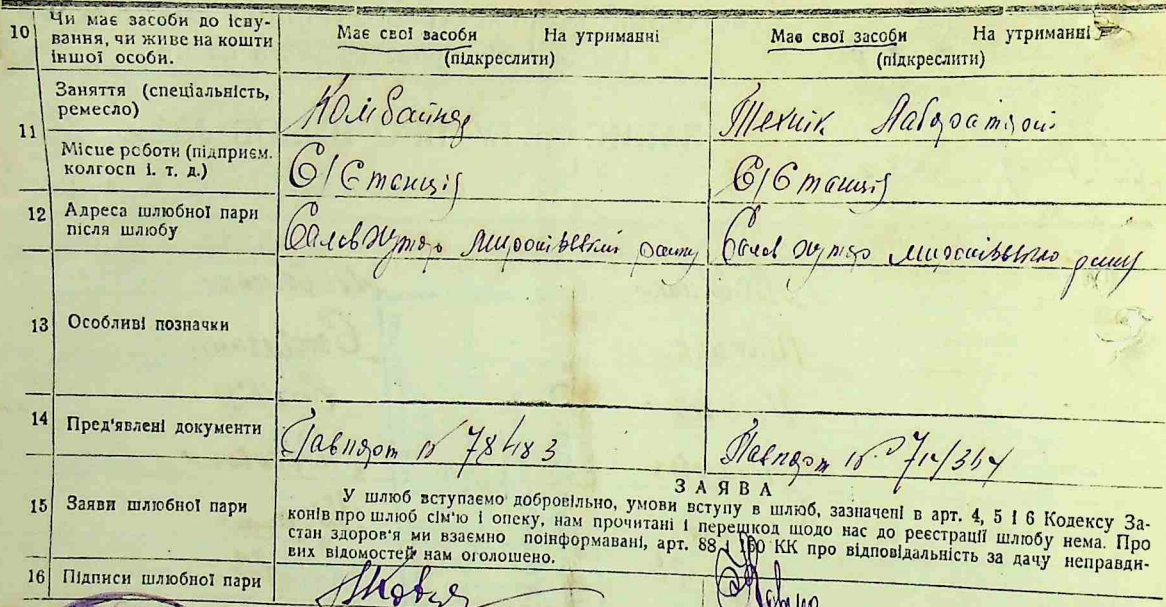 10 Чи має засоби до існування, чи живе на кошти іншої особи.
Має свої засоби На утриманні
(підкреслити)
Має свої засоби На утриманні
(підкреслити)
11 Заняття (спеціальність, ремесло)
Комбайнер
Технік Лабораторії
Місце роботи (підприєм. колгосп і. т. д.)
С/Станція
С/Станція
12 Адреса шлюбної пари після шлюбу
хутор Миронівський району
хутор Миронівського району
13 Особливі позначки
14 Пред'явлені документи
Пашпорт № 78483
Пашпорт №
15 Заяви шлюбної пари
ЗАЯВА
У шлюб вступаємо добровільно, умови вступу в шлюб, зазначені в арт. 4, 5 і 6 Кодексу За-
конів про шлюб сім'ю і опеку, нам прочитані і перешкод щодо нас до реєстрації шлюбу нема. Про
стан здоров'я ми взаємно поінформавані, арт. 88 і 160 КК про відповідальність за дачу неправди-
вих відомостей нам оголошено.
16 Підписи шлюбної пари